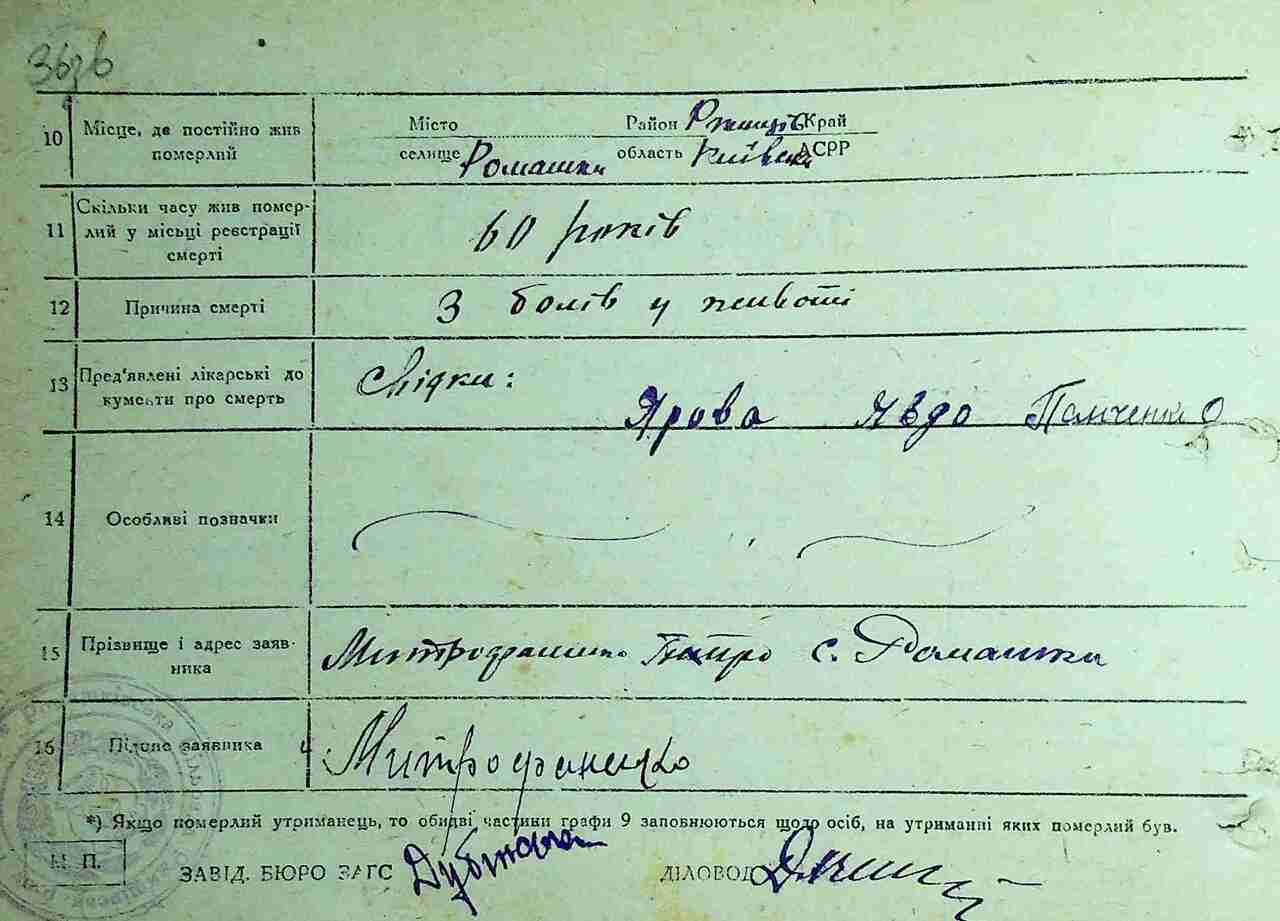 3636
10 Місце, де постійно жив Місто Район Ржищів Край
померлий селище Ромашки область Київська АСРР
11 Скільки часу жив помер-
лий у місці реєстрації 60 років
смерті
12 Причина смерті З болів у животі
13 Пред'явлені лікарські до Свідки:
кументи про смерть Ярова Явдо Панченко
14 Особливі позначки
15 Прізвище і адрес заяв- Митрофаненко Петро с. Ромашки
ника
16 Підпис заявника Митрофаненко
*) Якщо померлий утриманець, то обидві частини графи 9 заповнюються щодо осіб, на утриманні яких померлий був.
М. П. ЗАВІД. БЮРО ЗАГС ДІЛОВОД